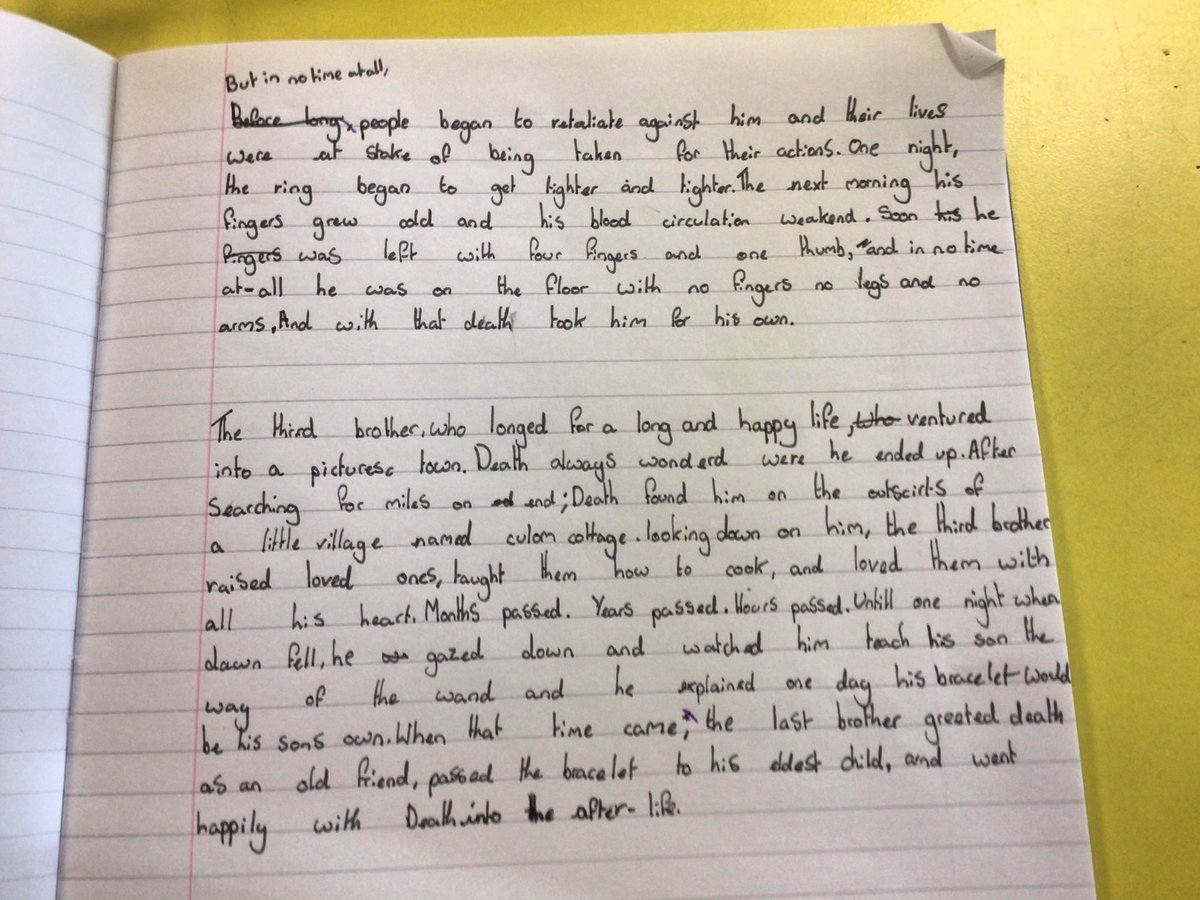 But in no time at all,
Before long, people began to retaliate against him and their lives
were at stake of being taken for their actions. One night,
the ring began to get tighter and tighter. The next morning his
fingers grew cold and his blood circulation weakend. Soon his he
fingers was left with four fingers and one thumb, and in no time
at-all he was on the floor with no fingers no legs and no
arms, And with that death took him for his own.
The third brother, who longed for a long and happy life, who ventured
into a picturesc town. Death always wonderd were he ended up. After
searching for miles on end; Death found him on the outscirts of
a little village named culom cottage. looking down on him, the third brother
raised loved ones, taught them how to cook, and loved them with
all his heart. Months passed. Years passed. Hours passed. Untill one night when
dawn fell, he gazed down and watched him teach his son the
way of the wand and he explained one day his bracelet would
be his sons own. When that time came, the last brother greeted death
as an old friend, passed the bracelet to his eldest child, and went
happily with Death into the after-life.